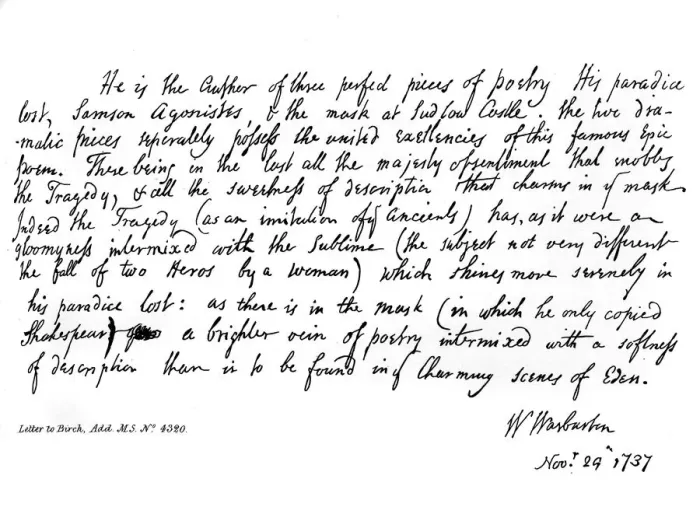 He is the Author of three perfect pieces of poetry His paradice
lost, Samson Agonistes, & the mask at Ludlow Castle. the two dra-
-matic pieces seperately possess the united exellencies of this famous Epic
poem. There being in the last all the majesty of sentiment that enobles
the Tragedy, & all the sweetness of description that charms in yͤ mask.
Indeed the Tragedy (as an imitation of yͤ Ancients) has, as it were a
gloomyness intermixed with the Sublime (the subject not very different
the fall of two Heros by a woman) which shines more serenely in
his paradice lost: as there is in the mask (in which he only copied
Shakespear) a brighter vein of poetry intermixed with a softness
of description than is to be found in yͤ Charming scenes of Eden.
W Warburton
Novͬ 29 1737
Letter to Birch, Add. M.S. Nº 4320.